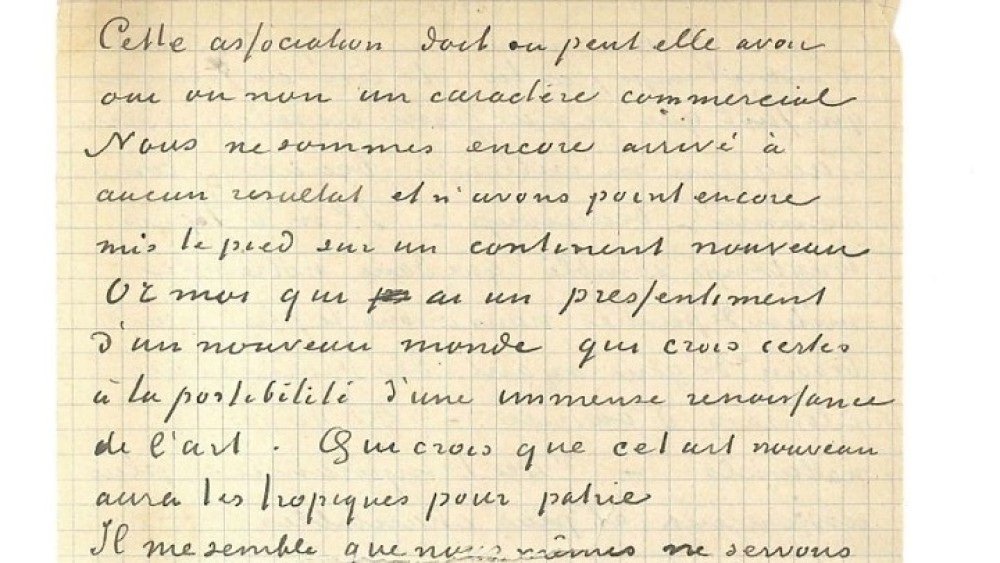 Cette association doit ou peut elle avoir
oui ou non un caractère commercial
Nous ne sommes encore arrivé à
aucun resultat et n'avons point encore
mis le pied sur un continent nouveau
Or moi qui ai un pressentiment
d'un nouveau monde qui crois certes
à la possibilité d'une immense renaissance
de l'art. Qui crois que cet art nouveau
aura les tropiques pour patrie
Il me semble que nous mêmes ne servons